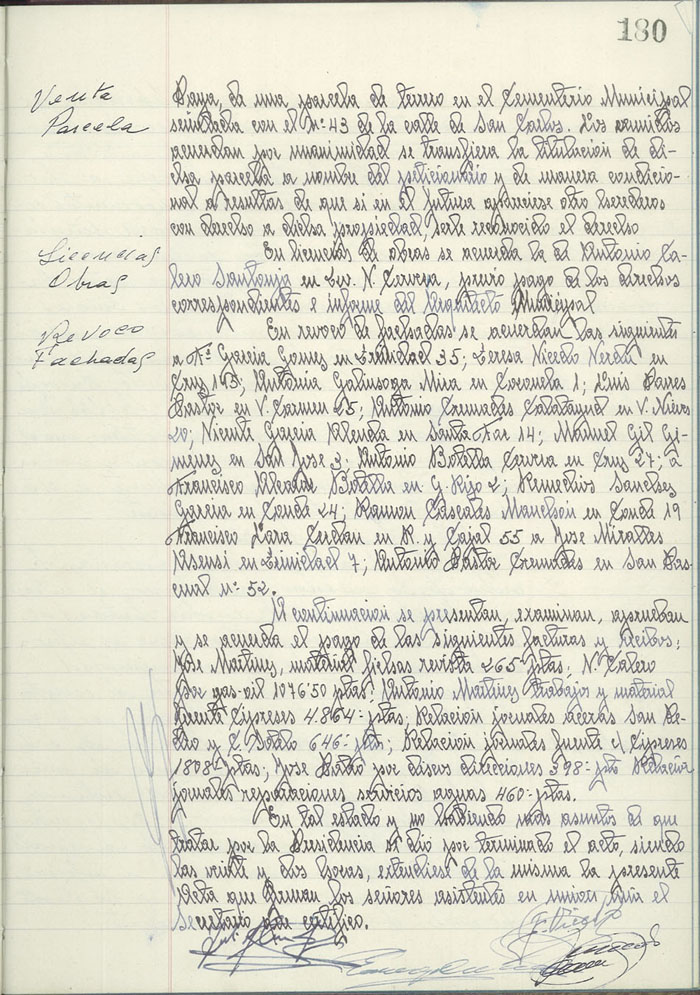 180
Venta
Parcela
Paya, de una parcela de terreno en el Cementerio Municipal
señalada con el Nº 43 de la calle de San Carlos. Los reunidos
acuerdan por unanimidad se transfiera la titulacion de di-
cha parcela a nombre del peticionario y de manera condicio-
nal a resultas de que si en el futuro apareciese otro herederos
con derecho a dicha propiedad, serle reconocido el derecho
Licencias
Obras
En licencias de obras se acuerda la de Antonio Ca-
lero Santonja en N. Cervera, previo pago de los derechos
correspondientes e informe del Arquitecto Municipal
Revoco
Fachadas
En revoco de fachadas se acuerdan las siguientes
a Fº Garcia Gomez en Trinidad 35; Teresa Nicedo Verdu en
Cruz 113; Antonia Galinsoga Mira en Escuela 1; Luis Pares
Pastor en V. Carmen 25; Antonio Cremades Calatayud en V. Nieves
20; Vicente Garcia Alenda en Santa Faz 14; Manuel Gil Gi-
menez en San Jose 3; Antonio Botella Cervera en Cruz 27; a
Francisco Alcaide Botella en G. Rijo 2; Remedios Sanchez
Garcia en Conde 24; Ramon Cascales Manchon en Conde 19
Francisco Lara Cerdan en R. y Cajal 55 a Jose Miralles
Asensi en Trinidad 7; Antonio Pastor Cremades en San Pas-
cual nº 52.
A continuacion se presentan, examinan, aprueban
y se acuerda el pago de las siguientes facturas y recibos;
Jose Martinez, material fichas revista 265 ptas; N. Calero
por gas-oil 1076'50 ptas; Antonio Martinez trabajos y material
fuente Cipreses 4.864- ptas; Relacion jornales aceras San Pe-
dro y C. Sotelo 646- ptas; Relacion jornales fuente el Cipreses
1808- ptas; Jose por discos direcciones 398- ptas Relacion
jornales reparaciones servicios aguas 460- ptas.
En tal estado y no habiendo mas asuntos de que
tratar por la Presidencia se dió por terminado el acto, siendo
las veinte y dos horas, extendiese de la misma la presente
Acta que firman los señores asistentes en union, el
Secretario que certifico.